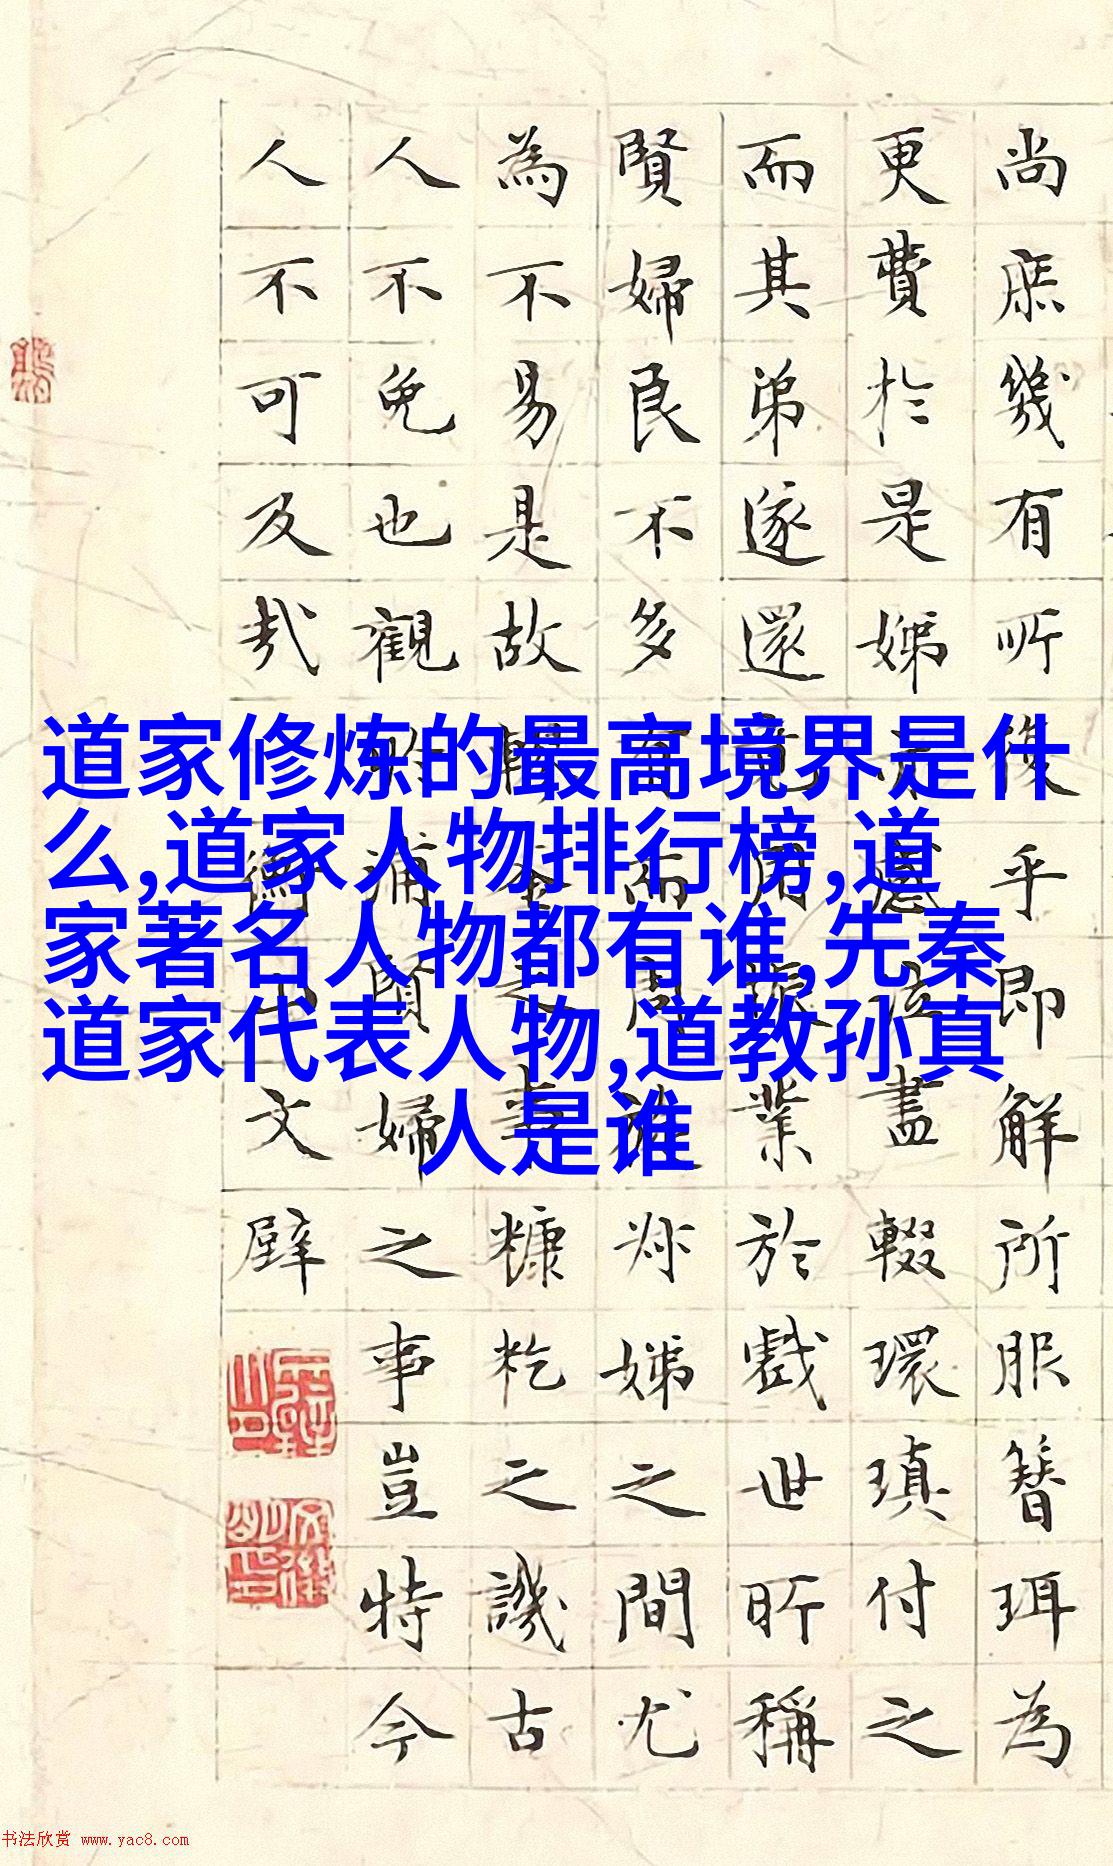 道家修炼的最高境界是什
么,道家人物排行榜,道
家著名人物都有谁,先秦
道家代表人物,道教孙真
人是谁
尚庶幾有所後乎即解所服簪珥為
更費於是娣感泣盡輟環瑱付之
而其弟遂還竟用振業於戲世所稱
賢婦民不多有而周娣之間尤
為不易是故之事糠籺之譏古
人不免也觀於浦婦之事豈特今
人不可及哉
衡山文璧
书法欣赏 www.yac8.com